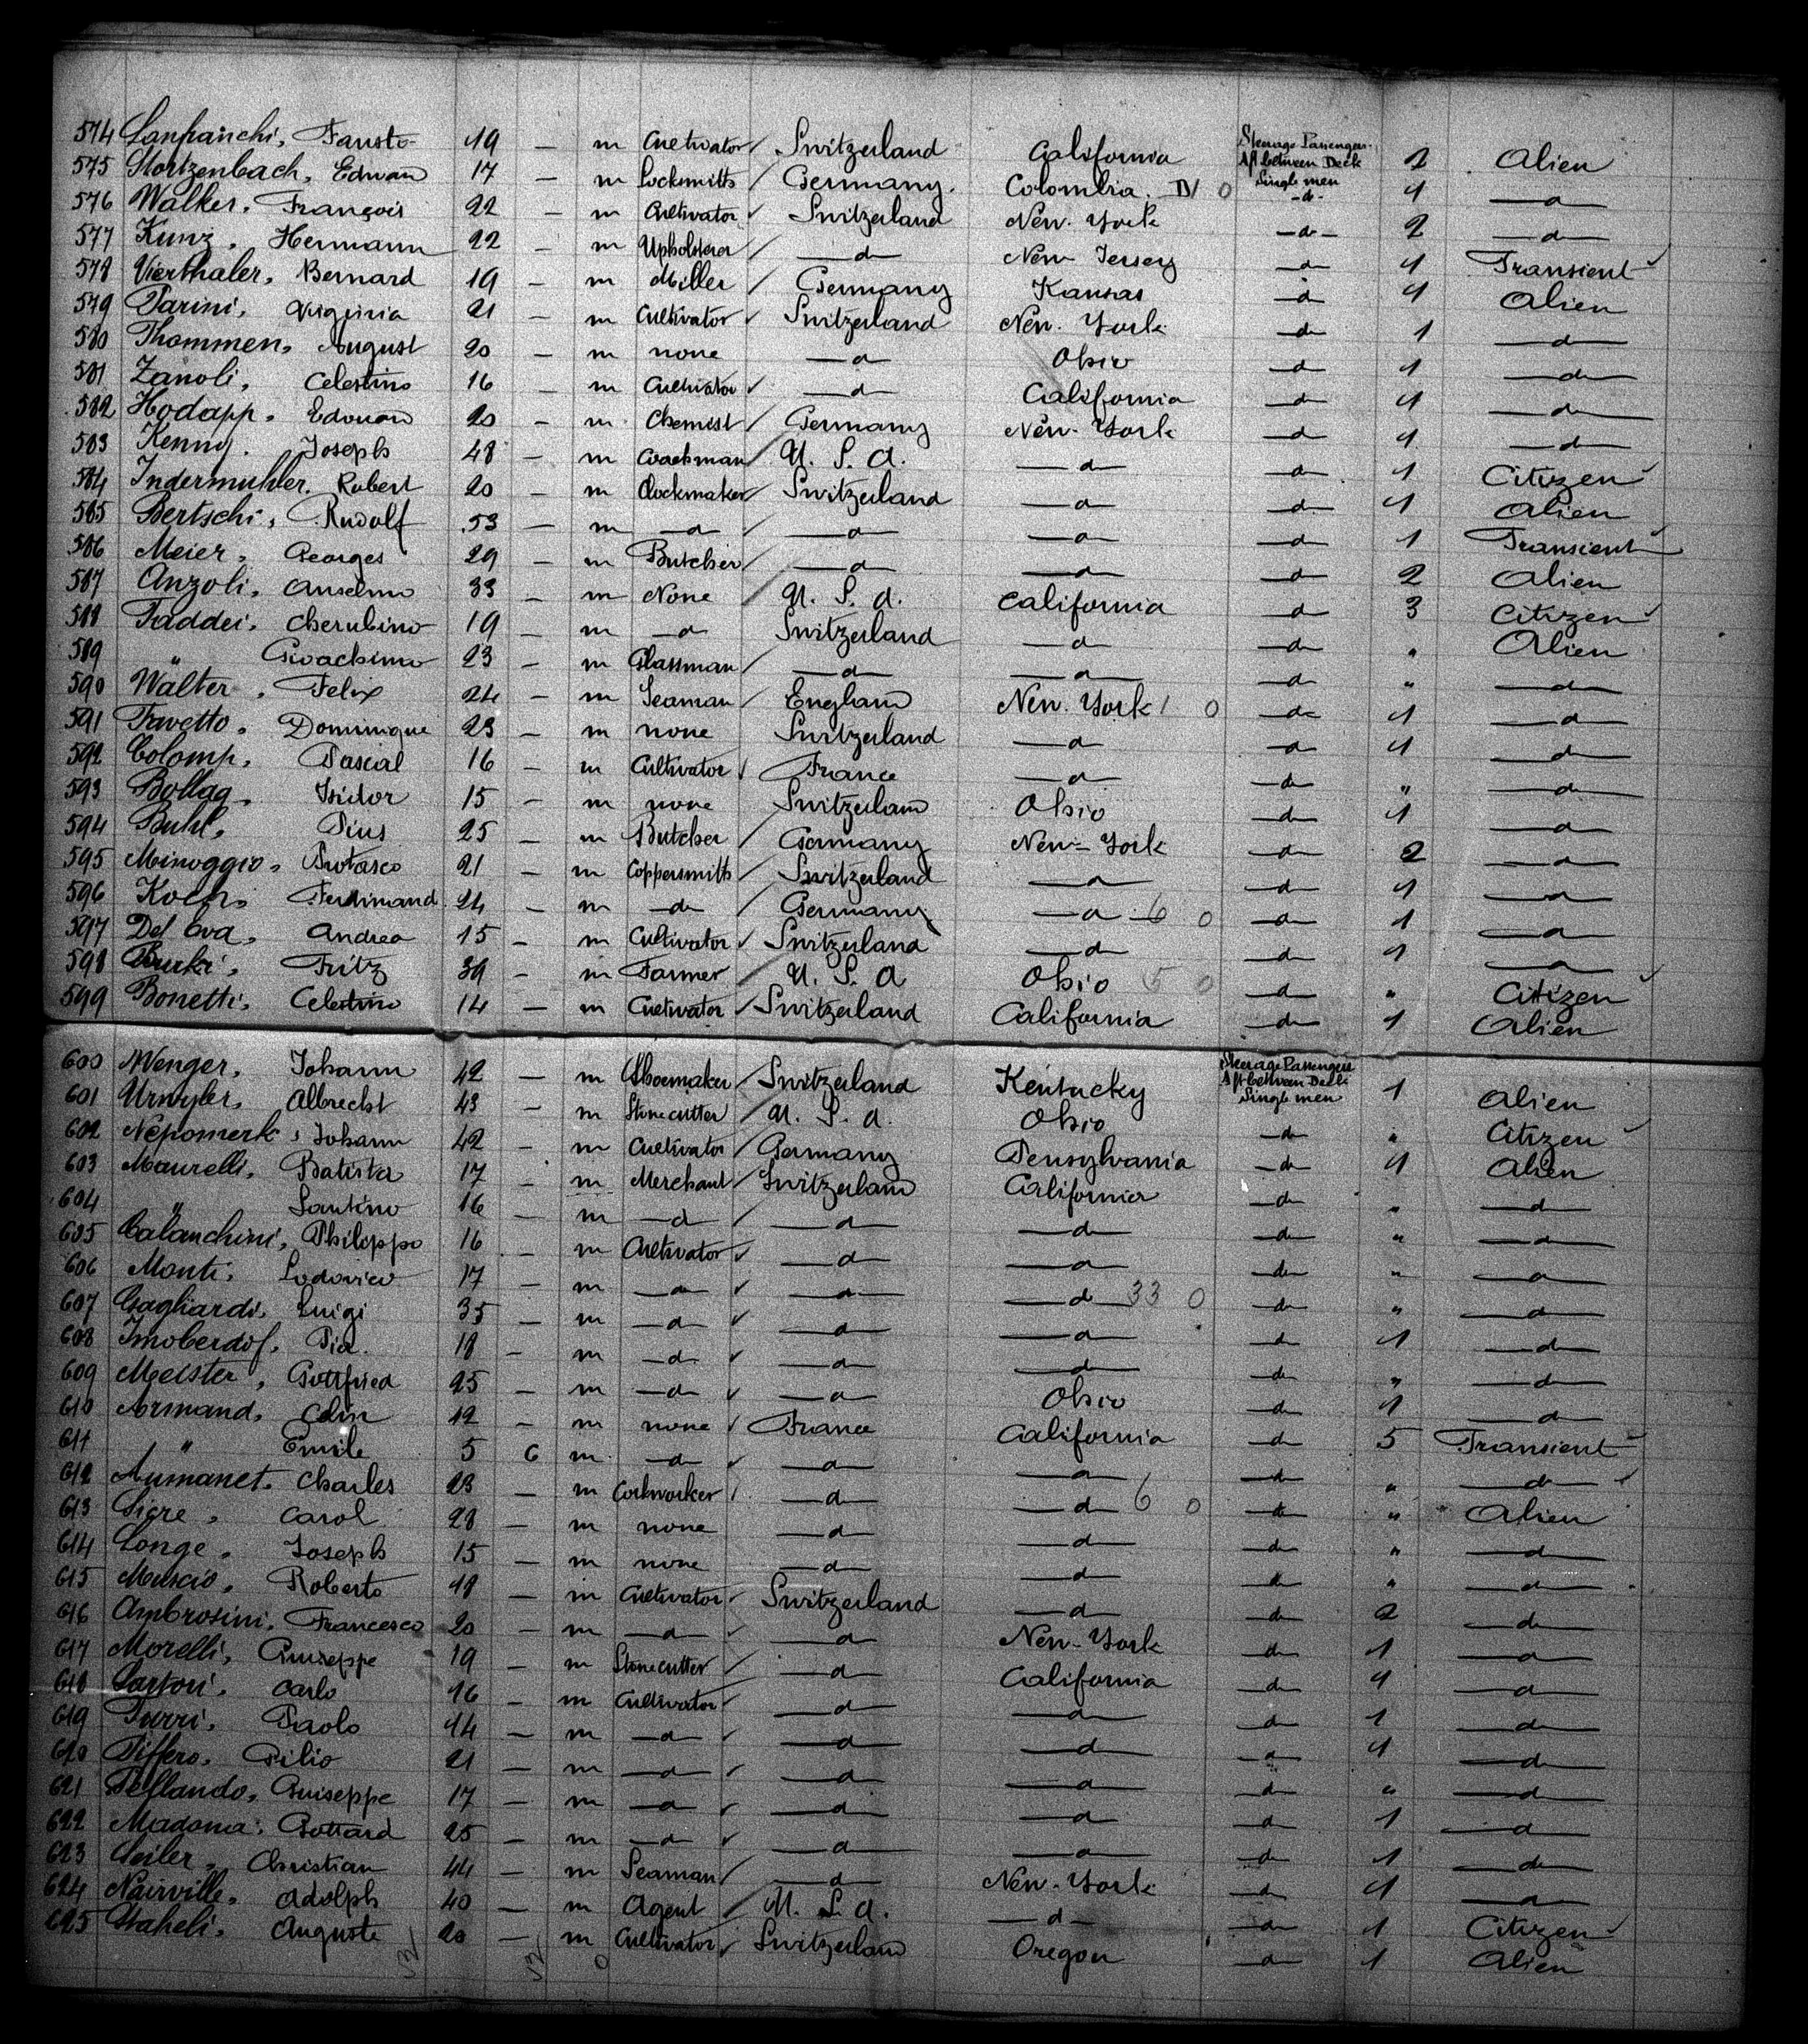 574 Lanfranchi, Fausto 19 — m Cultivator Switzerland California Steerage Passengers Aft between Deck Single men 2 Alien
575 Stortzenbach, Edwan 17 — m Locksmith Germany. Colombia. IV 0 -d- 1 —d—
576 Walker, François 22 — m Cultivator Switzerland New-York -do- 2 —d—
577 Kunz, Hermann 22 — m Upholsterer —d— New Jersey —d— 1 Transient
578 Vierthaler, Bernard 19 — m Miller Germany Kansas —d— 1 Alien
579 Parini, Virginia 21 — m Cultivator Switzerland New-York —d— 1 —d—
580 Thommen, August 20 — m none —d— Ohio —d— 1 —d—
581 Zanoli, Celestino 16 — m Cultivator —d— California —d— 1 —d—
582 Hodapp, Edouan 20 — m Chemist Germany New-York —d— 1 —d—
583 Kenny, Joseph 48 — m Coachman U. S. A. —d— —d— 1 Citizen
584 Indermuhler, Robert 20 — m Clockmaker Switzerland —d— —d— 1 Alien
585 Bertschi, Rudolf 53 — m —d— —d— —d— —d— 1 Transient
586 Meier, Georges 29 — m Butcher —d— —d— —d— 2 Alien
587 Anzoli, Anselmo 33 — m None U. S. A. California —d— 3 Citizen
588 Taddei, Cherubino 19 — m —d— Switzerland —d— —d— " Alien
589 " Givachimo 23 — m Glassman —d— —d— —d— " —d—
590 Walter, Felix 24 — m Seaman England New-York 1 0 —d— 1 —d—
591 Favetto, Dominique 23 — m none Switzerland —d— —d— 1 —d—
592 Colomp, Pascal 16 — m Cultivator France —d— —d— " —d—
593 Bollag, Isidor 15 — m none Switzerland Ohio —d— 1 —d—
594 Buhl, Pius 25 — m Butcher Germany New-York —d— 2 —d—
595 Minoggio, Protasco 21 — m Coppersmith Switzerland —d— —d— 1 —d—
596 Koch, Ferdinand 24 — m —d— Germany —d— 6 0 —d— 1 —d—
597 Del Eva, Andrea 15 — m Cultivator Switzerland —d— —d— 1 —d—
598 Burki, Fritz 39 — m Farmer U. S. A Ohio 5 0 —d— " Citizen
599 Bonetti, Celestino 14 — m Cultivator Switzerland California —d— 1 Alien
600 Wenger, Johann 42 — m Shoemaker Switzerland Kentucky Steerage Passengers Aft between Deck Single men 1 Alien
601 Urwyler, Albrecht 43 — m Stonecutter U. S. A. Ohio —d— " Citizen
602 Nepomerk, Johann 42 — m Cultivator Germany Pensylvania —d— 1 Alien
603 Maurelli, Batista 17 — m Merchant Switzerland California —d— " —d—
604 " Santino 16 — m —d— —d— —d— —d— " —d—
605 Calanchini, Philippo 16 — m Cultivator —d— —d— —d— " —d—
606 Monti, Lodovico 17 — m —d— —d— —d— 33 0 —d— " —d—
607 Gagliardi, Luigi 35 — m —d— —d— —d— —d— 1 —d—
608 Imoberdof, Pia. 18 — m —d— —d— —d— —d— " —d—
609 Meister, Gottfried 25 — m —d— —d— Ohio —d— 1 —d—
610 Armand, Colin 12 — m none France California —d— 5 Transient
611 " Emile 5 6 m —d— —d— —d— —d— " —d—
612 Aumanet, Charles 23 — m Corkworker —d— —d— 6 0 —d— " Alien
613 Sicre, Carol 28 — m none —d— —d— —d— " —d—
614 Longe, Joseph 15 — m none —d— —d— —d— " —d—
615 Muscio, Roberto 18 — m Cultivator Switzerland —d— —d— 2 —d—
616 Ambrosini, Francesco 20 — m —d— —d— New-York —d— 1 —d—
617 Morelli, Guiseppe 19 — m Stonecutter —d— California —d— 1 —d—
618 Sartori, Carlo 16 — m Cultivator —d— —d— —d— 1 —d—
619 Turri, Paolo 14 — m —d— —d— —d— —d— 1 —d—
620 Piffero, Pilio 21 — m —d— —d— —d— —d— " —d—
621 Pellando, Guiseppe 17 — m —d— —d— —d— —d— 1 —d—
622 Madonna, Gottard 25 — m —d— —d— —d— —d— 1 —d—
623 Seiler, Christian 44 — m Seaman —d— New-York —d— 1 —d—
624 Nairville, Adolph 40 — m Agent U. S. A. —d— —d— 1 Citizen
625 Staheli, Auguste 20 — m Cultivator Switzerland Oregon —d— 1 Alien